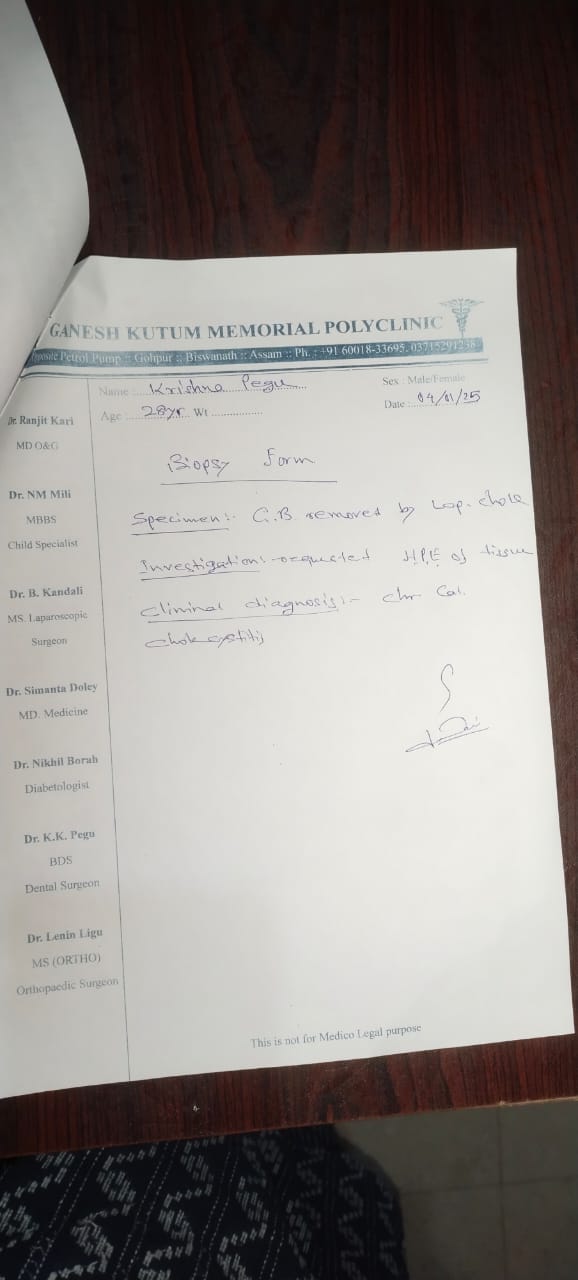 GANESH KUTUM MEMORIAL POLYCLINIC
Opposite Petrol Pump :: Gohpur :: Biswanath :: Assam :: Ph. : +91 60018-33695, 03715291238
Name : Krishna Pegu
Sex : Male/Female
Age : 28yr Wt
Date : 04/01/25
Dr. Ranjit Kari
MD O&G
Dr. NM Mili
MBBS
Child Specialist
Dr. B. Kandali
MS. Laparoscopic
Surgeon
Dr. Simanta Doley
MD. Medicine
Dr. Nikhil Borah
Diabetologist
Dr. K.K. Pegu
BDS
Dental Surgeon
Dr. Lenin Ligu
MS (ORTHO)
Orthopaedic Surgeon
Biopsy Form
Specimen :- G.B removed by Lap. chole
Investigation :- requested H.P.E of tissue
Clininal diagnosis :- chr Cal.
Cholecystitis
This is not for Medico Legal purpose